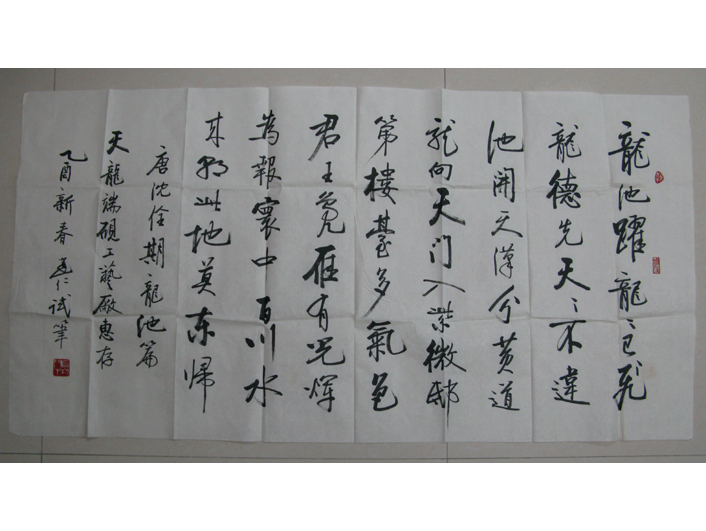 龍池躍龍龍已飛
龍德先天天不違
池開天漢分黃道
龍向天門入紫微邸
第樓臺多氣色
君王鳧雁有光輝
為報寰中百川水
來朝此地莫東歸
唐沈佺期龍池篇
天龍端硯工藝廠惠存
乙酉新春 仁試筆